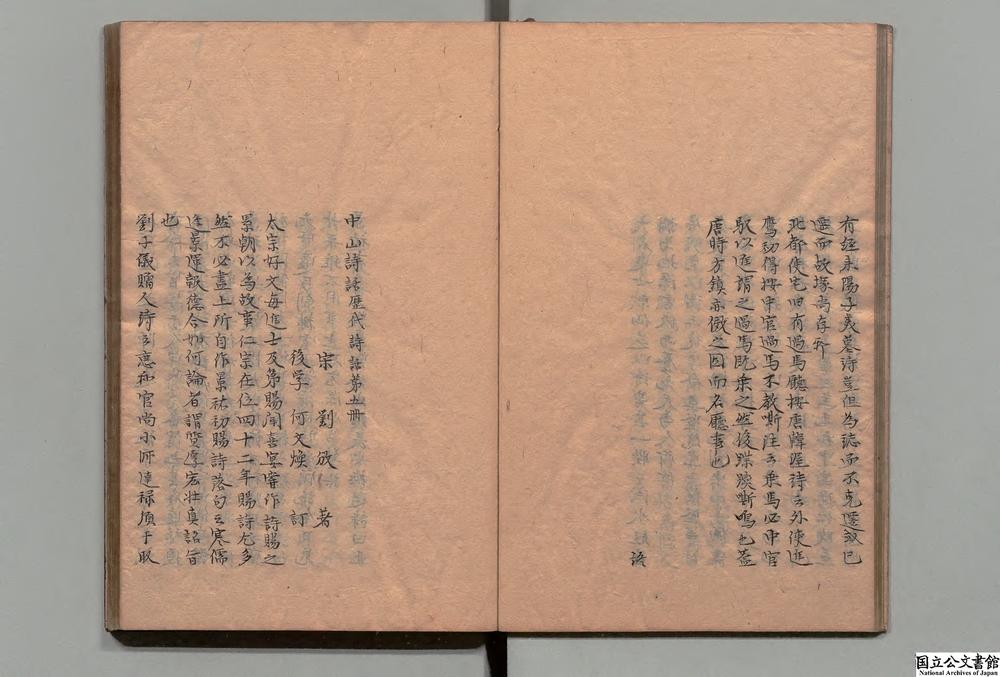 有經耒陽子美墓詩豈但為誌而不克遷㪅已
遷而故塚尚存耶
北都使宅旧有過馬廳按唐韓偓詩云外使進
鷹初得按中官過馬不教嘶注云乗馬必中官
馭以進謂之過馬既乗之然後蹀躞嘶鳴也蓋
唐時方鎮亦傚之因而名廳事也
語
中山詩話歴代詩話第五冊
宋 劉攽 著
後学 何文煥 訂
太宗好文每進士及第賜聞喜宴常作詩賜之
累朝以為故事仁宗在位四十二年賜詩尤多
然不必盡上所自作景祐初賜詩落句云寒儒
逢景運報徳合如何論者謂質厚宏壮真詔旨
也
劉子儀贈人詩云恵和官尚小師達禄須干取
国立公文書館
National Archives of Japan